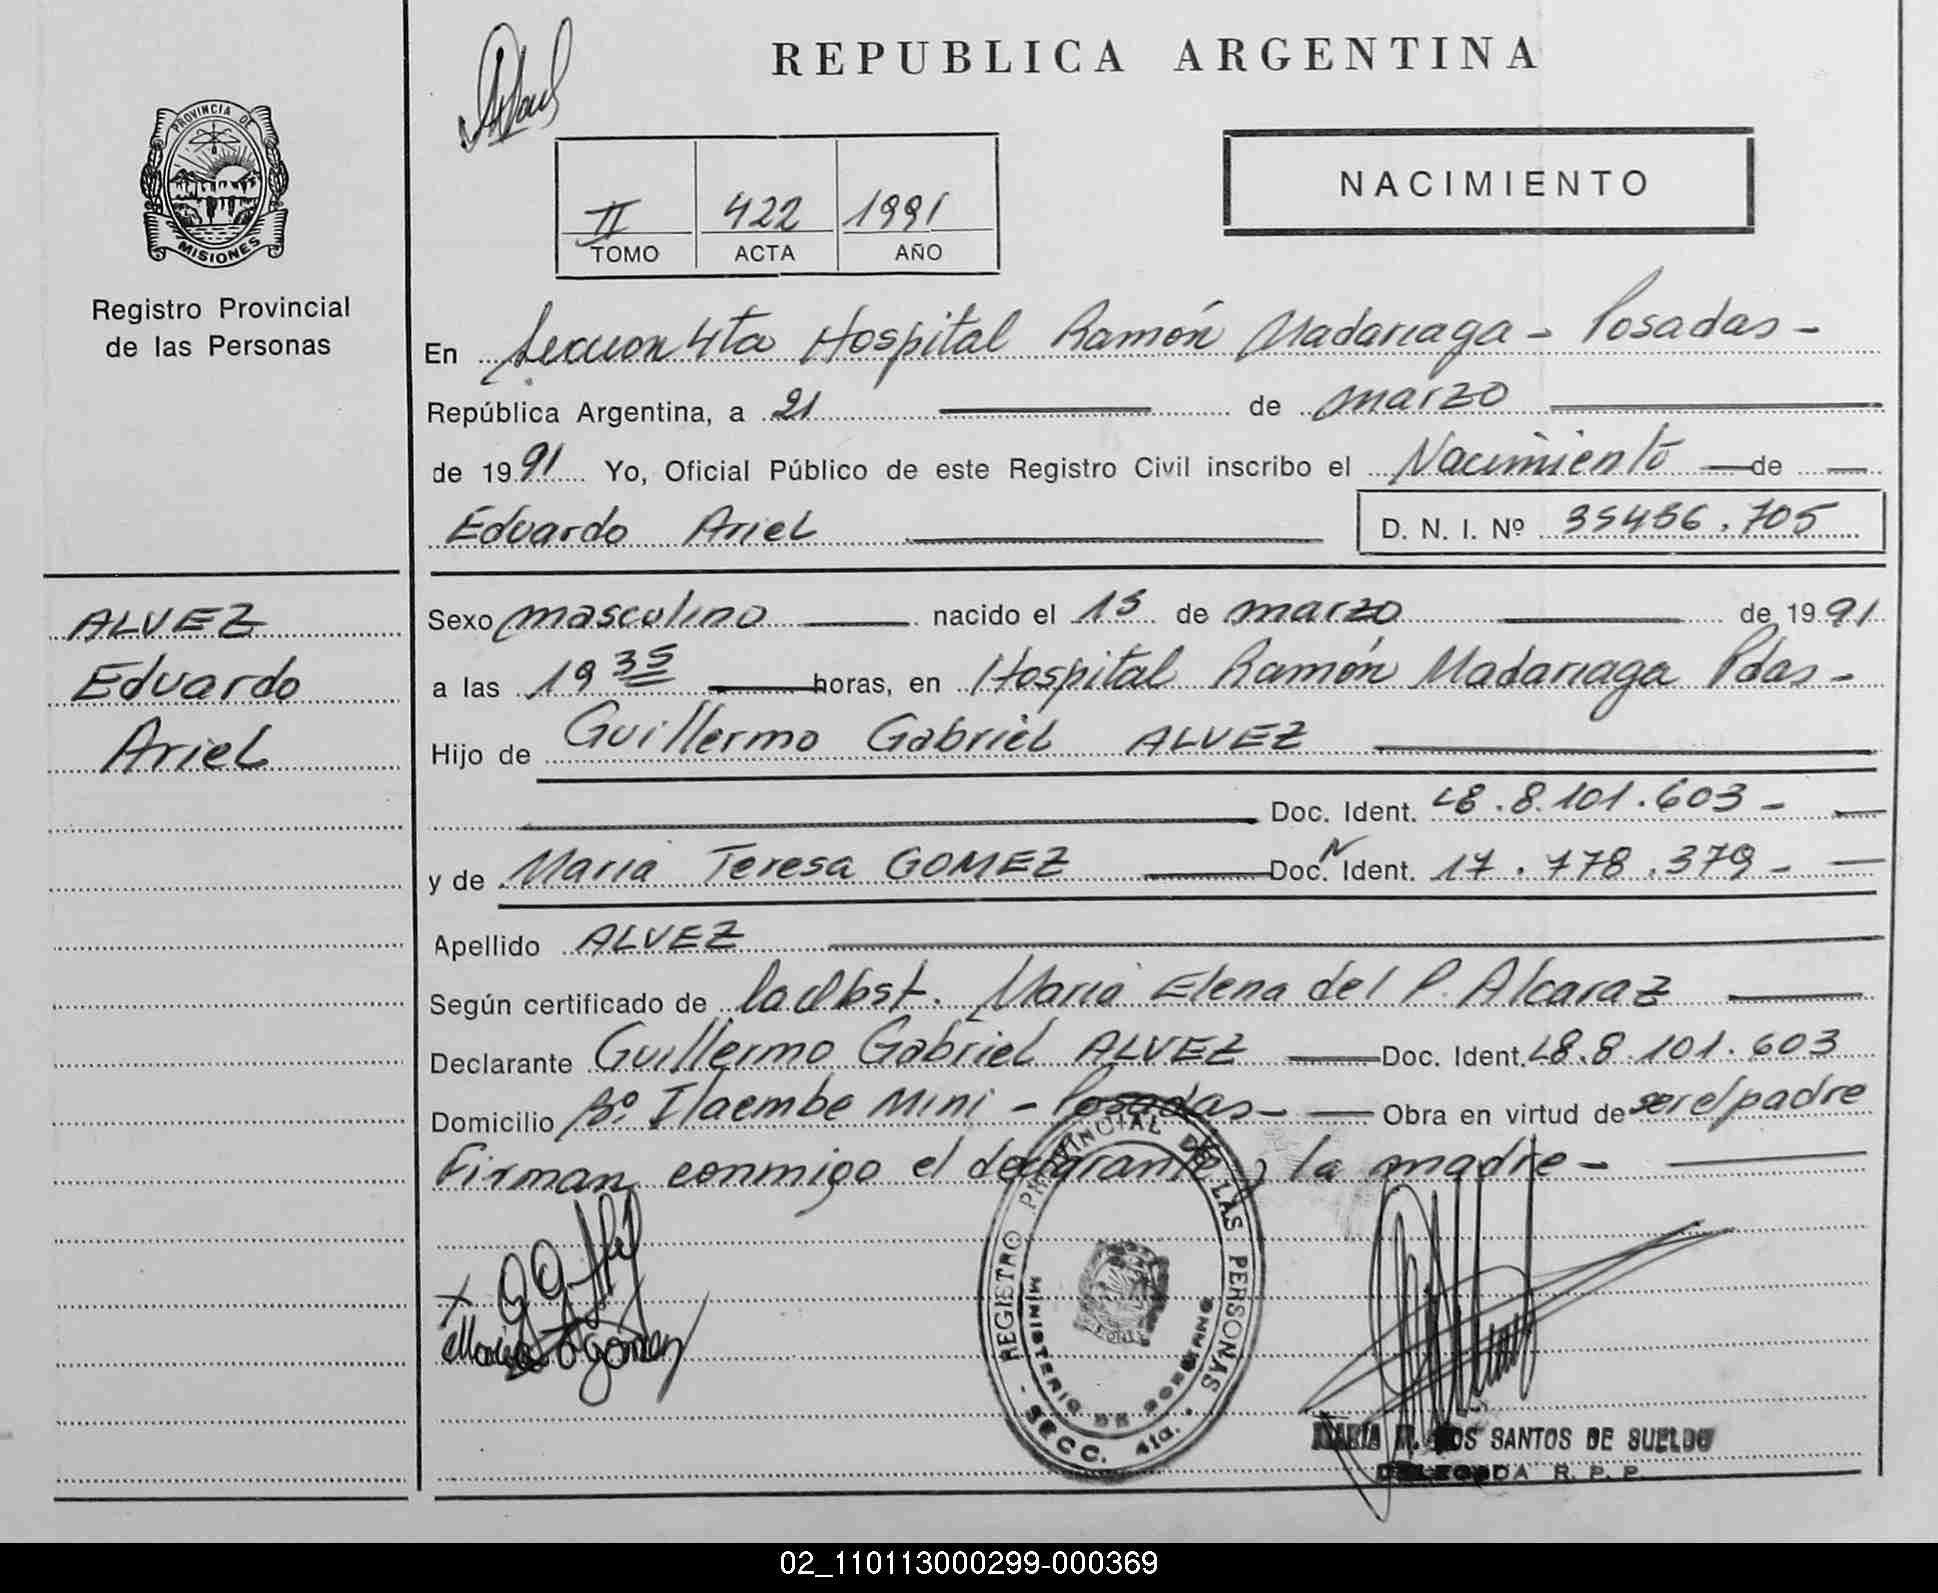 REPUBLICA ARGENTINA
PROVINCIA DE
MISIONES
Registro Provincial
de las Personas
NACIMIENTO
II 422 1991
TOMO ACTA AÑO
En Seccion 4ta Hospital Ramón Madariaga - Posadas -
República Argentina, a 21 de marzo
de 1991 Yo, Oficial Público de este Registro Civil inscribo el Nacimiento de
Eduardo Ariel
D. N. I. Nº 35456.705
ALVEZ
Eduardo
Ariel
Sexo masculino nacido el 15 de marzo de 1991
a las 19 35 horas, en Hospital Ramón Madariaga Pdas -
Hijo de Guillermo Gabriel ALVEZ
Doc. Ident. L8.8.101.603 -
y de Maria Teresa GOMEZ Doc. Ident. N 17.778.379 -
Apellido ALVEZ
Según certificado de la Obst. Maria Elena del P. Alcaraz
Declarante Guillermo Gabriel ALVEZ Doc. Ident. L8.8.101.603
Domicilio Bº Itaembe Mini - Posadas - Obra en virtud de ser el padre
Firman conmigo el declarante y la madre -
REGISTRO PROVINCIAL DE LAS PERSONAS
MINISTERIO DE GOBIERNO
- SECC. 4ta. -
Maria T Gomez
MARIA DOS SANTOS DE SUELDO
DELEGADA R. P. P.
02_110113000299-000369